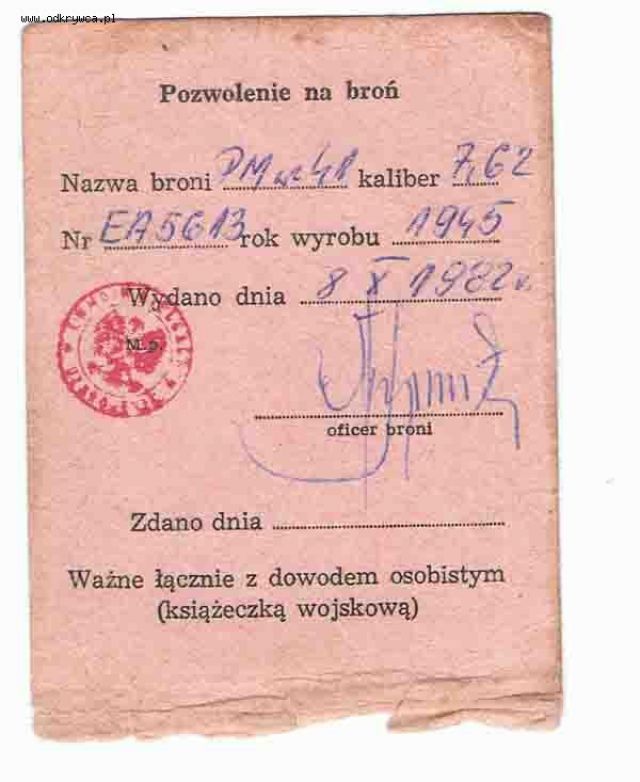 www.odkrywca.pl
Pozwolenie na broń
Nazwa broni PM wz 41 kaliber 7,62
Nr EA5613 rok wyrobu 1945
Wydano dnia 8 X 1982 r.
M.p.
oficer broni
Zdano dnia
Ważne łącznie z dowodem osobistym
(książeczką wojskową)